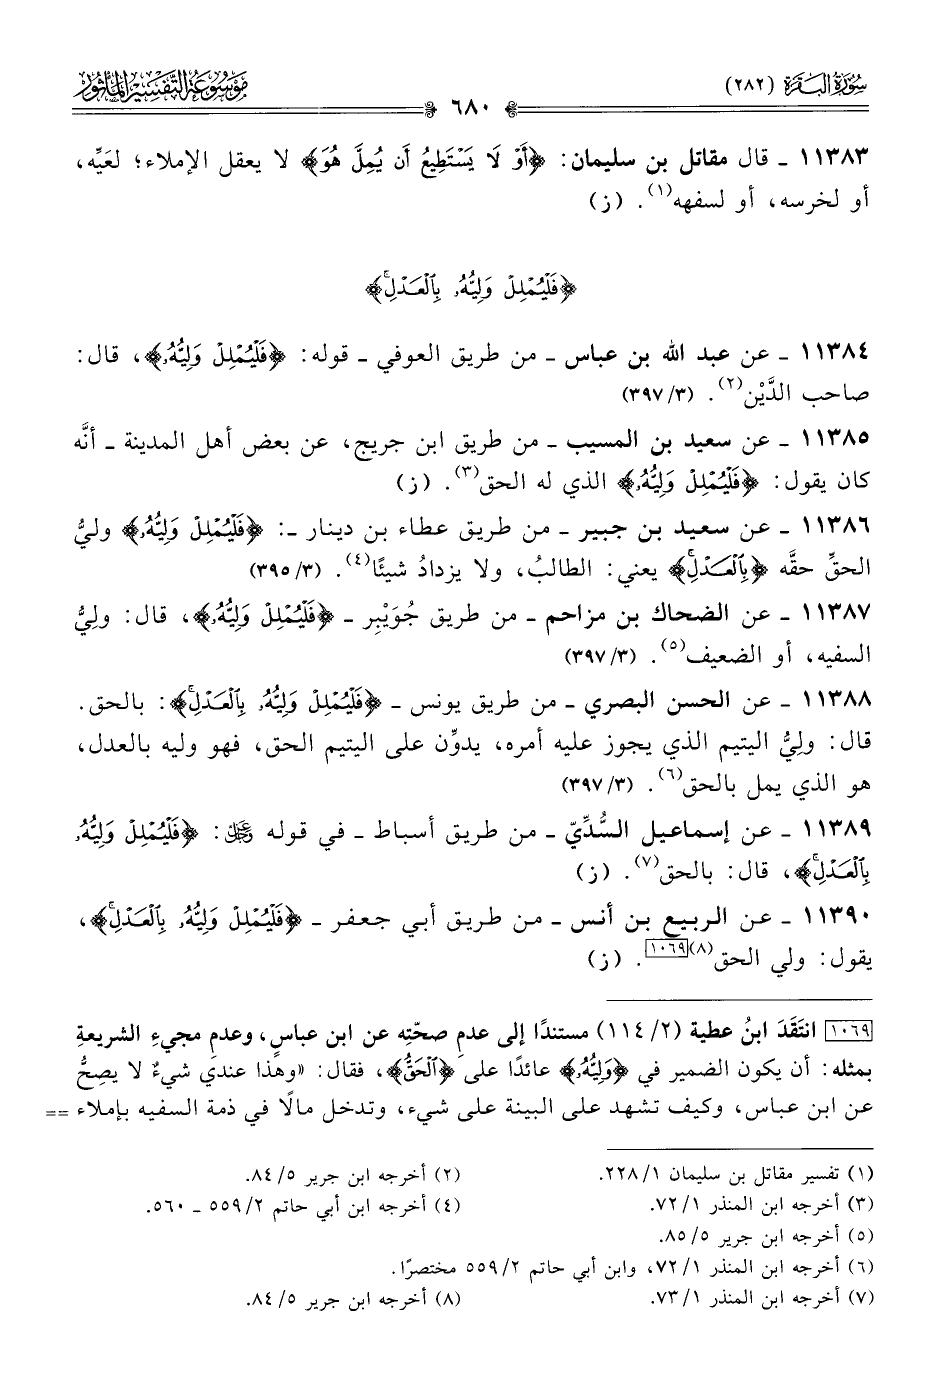 سورة البقرة (٢٨٢)
موسوعة التفسير المأثور
٦٨٠
١١٣٨٣ ـ قال مقاتل بن سليمان: ﴿أَوْ لَا يَسْتَطِيعُ أَن يُمِلَّ هُوَ﴾ لا يعقل الإملاء؛ لعَيِّه،
أو لخرسه، أو لسفهه(١). (ز)
﴿فَلْيُمْلِلْ وَلِيُّهُۥ بِٱلْعَدْلِۚ﴾
١١٣٨٤ ـ عن عبد الله بن عباس ـ من طريق العوفي ـ قوله: ﴿فَلْيُمْلِلْ وَلِيُّهُۥ﴾، قال:
صاحب الدَّيْن(٢). (٣/ ٣٩٧)
١١٣٨٥ ـ عن سعيد بن المسيب ـ من طريق ابن جريج، عن بعض أهل المدينة ـ أنَّه
كان يقول: ﴿فَلْيُمْلِلْ وَلِيُّهُۥ﴾ الذي له الحق(٣). (ز)
١١٣٨٦ ـ عن سعيد بن جبير ـ من طريق عطاء بن دينار ـ: ﴿فَلْيُمْلِلْ وَلِيُّهُۥ﴾ وليُّ
الحقِّ حقَّه ﴿بِٱلْعَدْلِۚ﴾ يعني: الطالبُ، ولا يزدادُ شيئًا(٤). (٣/ ٣٩٥)
١١٣٨٧ ـ عن الضحاك بن مزاحم ـ من طريق جُوَيْبِر ـ ﴿فَلْيُمْلِلْ وَلِيُّهُۥ﴾، قال: ولِيُّ
السفيه، أو الضعيف(٥). (٣/ ٣٩٧)
١١٣٨٨ ـ عن الحسن البصري ـ من طريق يونس ـ ﴿فَلْيُمْلِلْ وَلِيُّهُۥ بِٱلْعَدْلِۚ﴾: بالحق.
قال: ولِيُّ اليتيم الذي يجوز عليه أمره، يدوِّن على اليتيم الحق، فهو وليه بالعدل،
هو الذي يمل بالحق(٦). (٣/ ٣٩٧)
١١٣٨٩ ـ عن إسماعيل السُّدِّيّ ـ من طريق أسباط ـ في قوله ﷿: ﴿فَلْيُمْلِلْ وَلِيُّهُۥ
بِٱلْعَدْلِۚ﴾، قال: بالحق(٧). (ز)
١١٣٩٠ ـ عن الربيع بن أنس ـ من طريق أبي جعفر ـ ﴿فَلْيُمْلِلْ وَلِيُّهُۥ بِٱلْعَدْلِۚ﴾،
يقول: ولي الحق(٨)[١٠٦٩]. (ز)
[١٠٦٩] انتَقَدَ ابنُ عطية (٢/ ١١٤) مستندًا إلى عدمِ صحّتِه عن ابن عباسٍ، وعدمِ مجيءِ الشريعةِ
بمثله: أن يكون الضمير في ﴿وَلِيُّهُۥ﴾ عائدًا على ﴿ٱلْحَقُّ﴾، فقال: «وهذا عندي شيءٌ لا يصِحُّ
عن ابن عباس، وكيف تشهد على البينة على شيء، وتدخل مالًا في ذمة السفيه بإملاء ==
(١) تفسير مقاتل بن سليمان ١/ ٢٢٨.
(٢) أخرجه ابن جرير ٥/ ٨٤.
(٣) أخرجه ابن المنذر ١/ ٧٢.
(٤) أخرجه ابن أبي حاتم ٢/ ٥٥٩ ـ ٥٦٠.
(٥) أخرجه ابن جرير ٥/ ٨٥.
(٦) أخرجه ابن المنذر ١/ ٧٢، وابن أبي حاتم ٢/ ٥٥٩ مختصرًا.
(٧) أخرجه ابن المنذر ١/ ٧٣.
(٨) أخرجه ابن جرير ٥/ ٨٤.